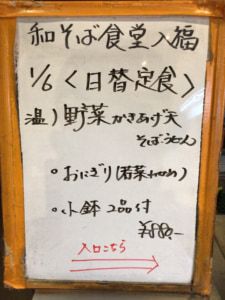 和そば食堂入福
1/6 <日替定食>
温) 野菜かきあげ天
そば・うどん
。おにぎり(若菜わかめ)
。小鉢 2品付
¥880-
入口こちら